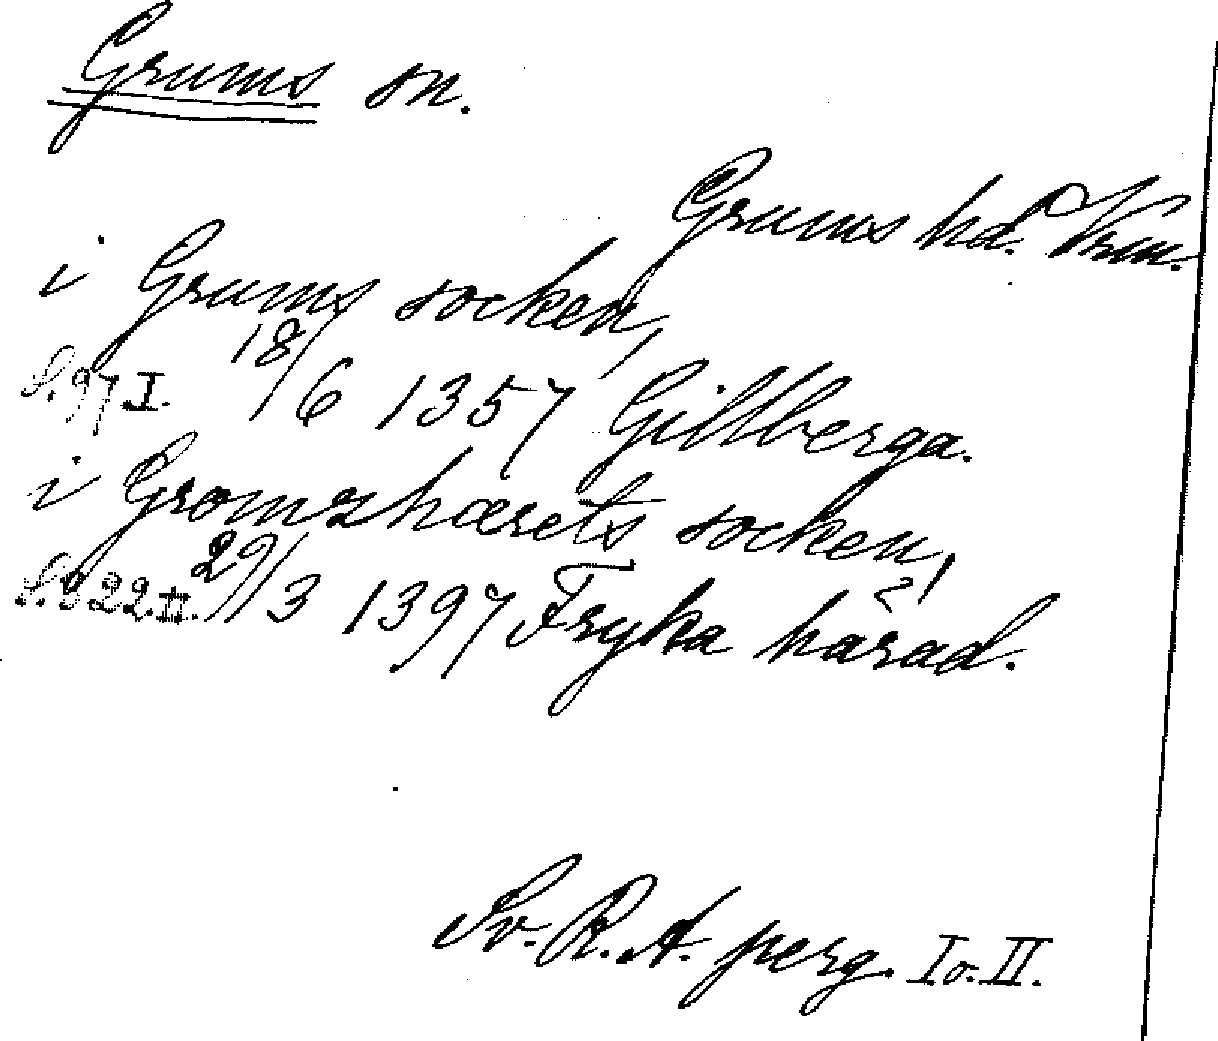 Grums sn.
Grums hd. Vrm.
i Grums socken,
S. 97 I. 18/6 1357 Gillberga.
i Gromzhærets socken,
S. 322. II. 29/3 1397 Fryka härad.
Sv. R. A. perg. I o. II.